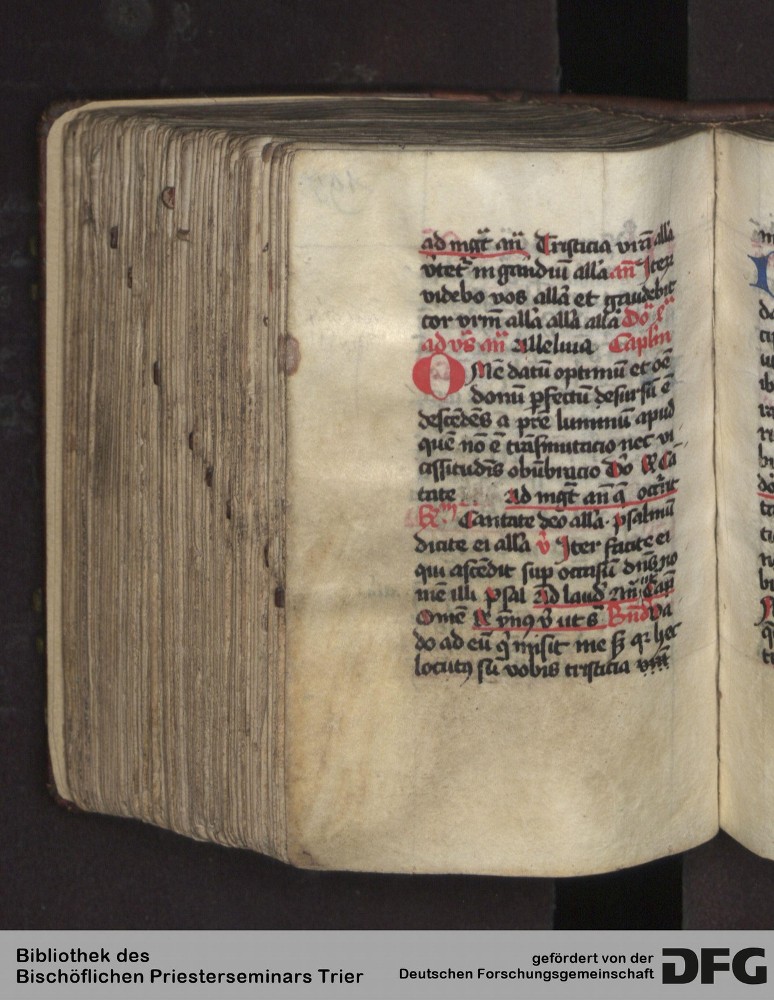 ad mgt an Tristicia vrā alla
vtet in gaudiū alla an Iterū
videbo vos alla et gaudebit
cor vrm alla alla alla Do
ad vs an Alleluia Caplm
OMē datū optimū et oē
donū pfectū desursū ē
descēdēs a pre luminū apud
quē nō ē trāsmutacio nec vi
cissitudis obūbracio
tate ad mgt an q ocrrit
Cantate deo alla psalmū
dicite ei alla v Iter facite ei
qui ascēdit sup occasū dns no
mē illi psal Ad laud An Capi
Omē ymnq v ut s Bnd Va
do ad eū q misit me sz qr hec
locutq sū vobis tristicia
Bibliothek des
Bischöflichen Priesterseminars Trier
gefördert von der
Deutschen Forschungsgemeinschaft
DFG